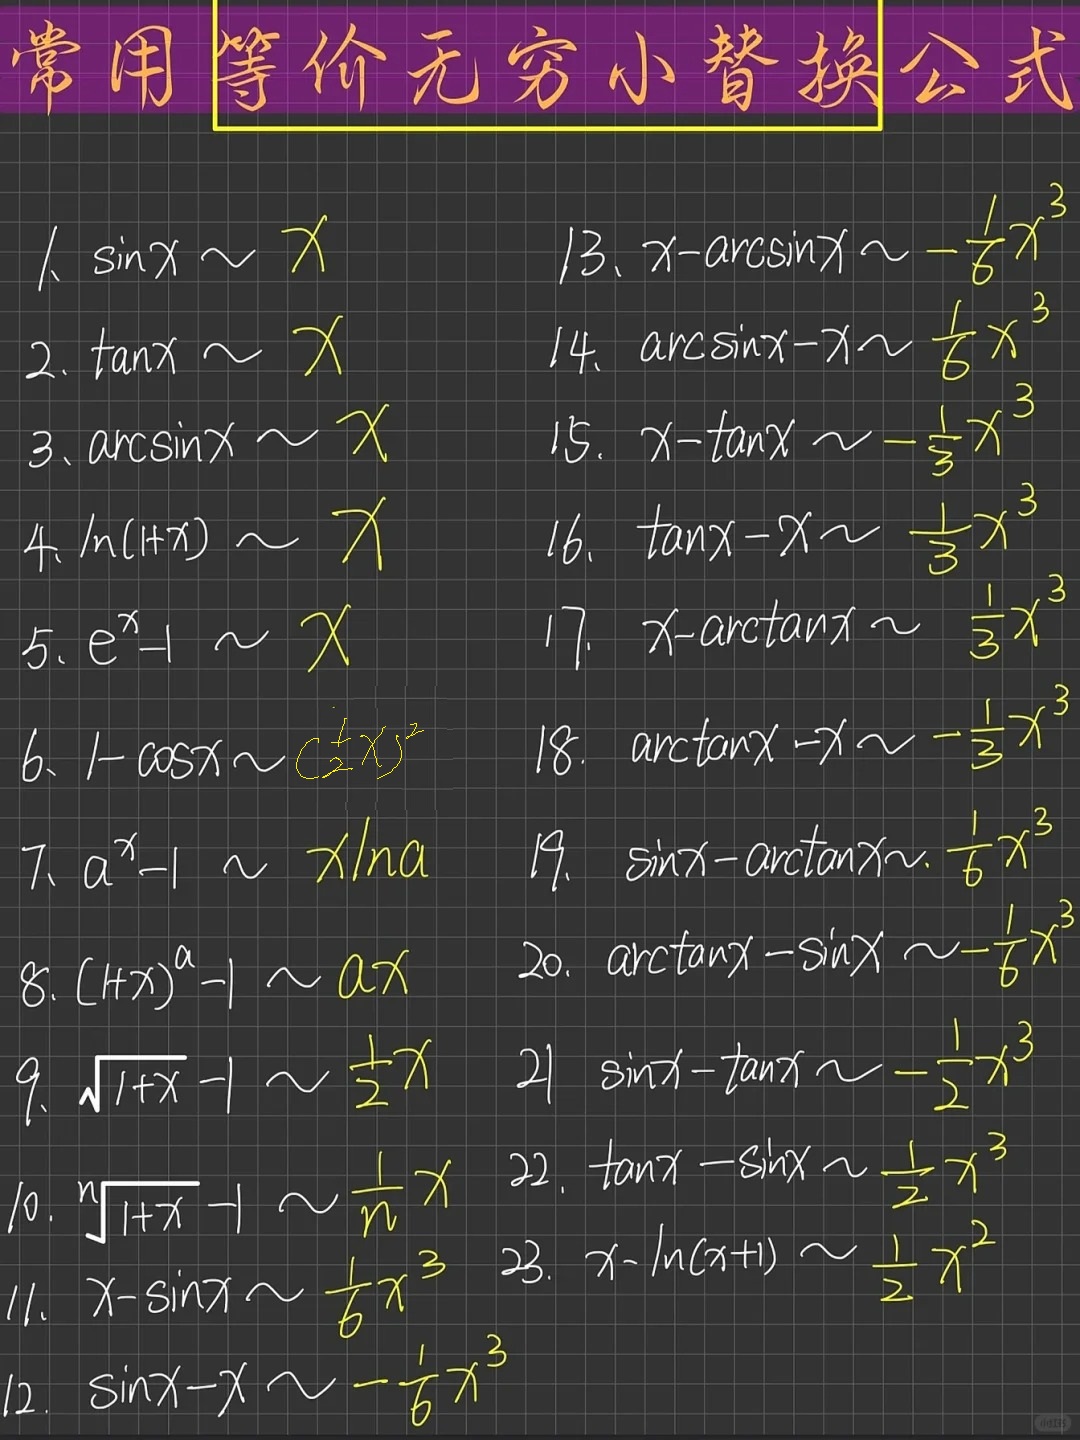 常用等价无穷小替换公式
1、sinx ~ x
2、tanx ~ x
3、arcsinx ~ x
4、ln(1+x) ~ x
5、eˣ-1 ~ x
6、1-cosx ~ (½x)²
7、aˣ-1 ~ xlna
8. (1+x)ᵃ-1 ~ ax
9、√(1+x) -1 ~ ½x
10. ⁿ√(1+x) -1 ~ 1/n x
11. x-sinx ~ 1/6 x³
12. sinx-x ~ -1/6 x³
13、x-arcsinx ~ -1/6 x³
14. arcsinx-x ~ 1/6 x³
15. x-tanx ~ -1/3 x³
16. tanx-x ~ 1/3 x³
17. x-arctanx ~ 1/3 x³
18. arctanx-x ~ -1/3 x³
19. sinx-arctanx ~. 1/6 x³
20. arctanx-sinx ~ -1/6 x³
21 sinx-tanx ~ -1/2 x³
22. tanx-sinx ~ 1/2 x³
23. x-ln(x+1) ~ 1/2 x²